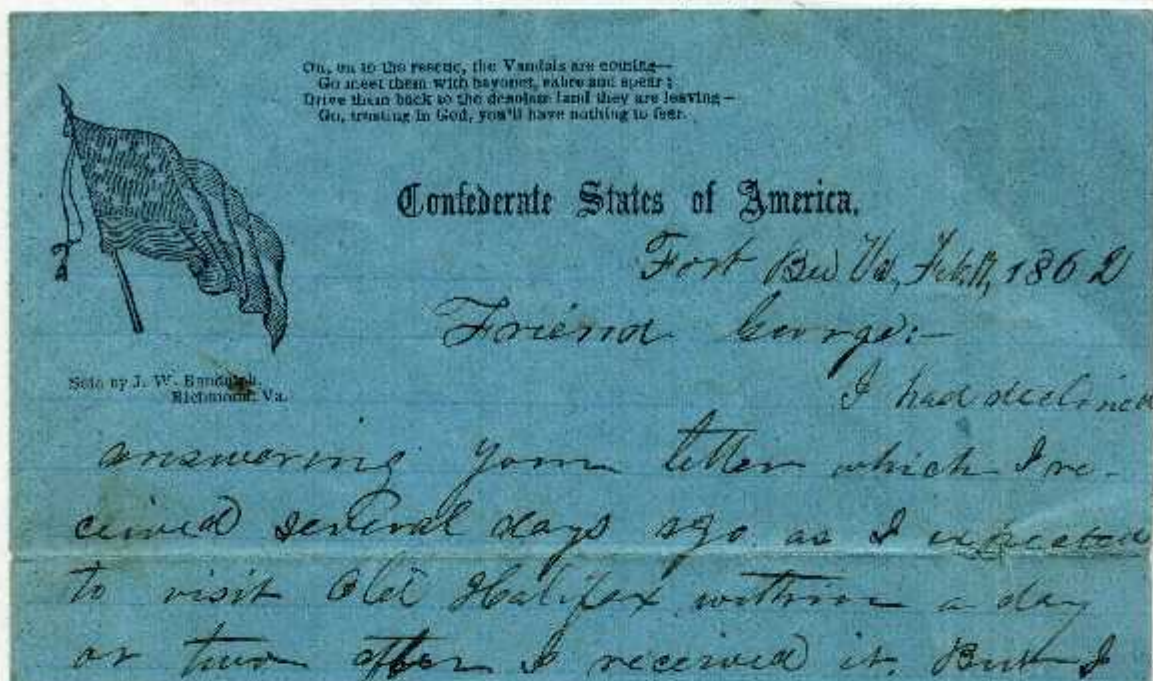 On, on to the rescue, the Vandals are coming—
Go meet them with bayonet, sabre and spear;
Drive them back to the desolate land they are leaving—
Go, trusting in God, you'll have nothing to fear.
Confederate States of America.
Fort Va, Feb. 1862
Friend George:—
Sold by J. W. Randolph,
Richmond, Va.
I had declined
answering your letter which I re-
ceived several days ago as I expected
to visit Old Halifax within a day
or two after I received it. But I